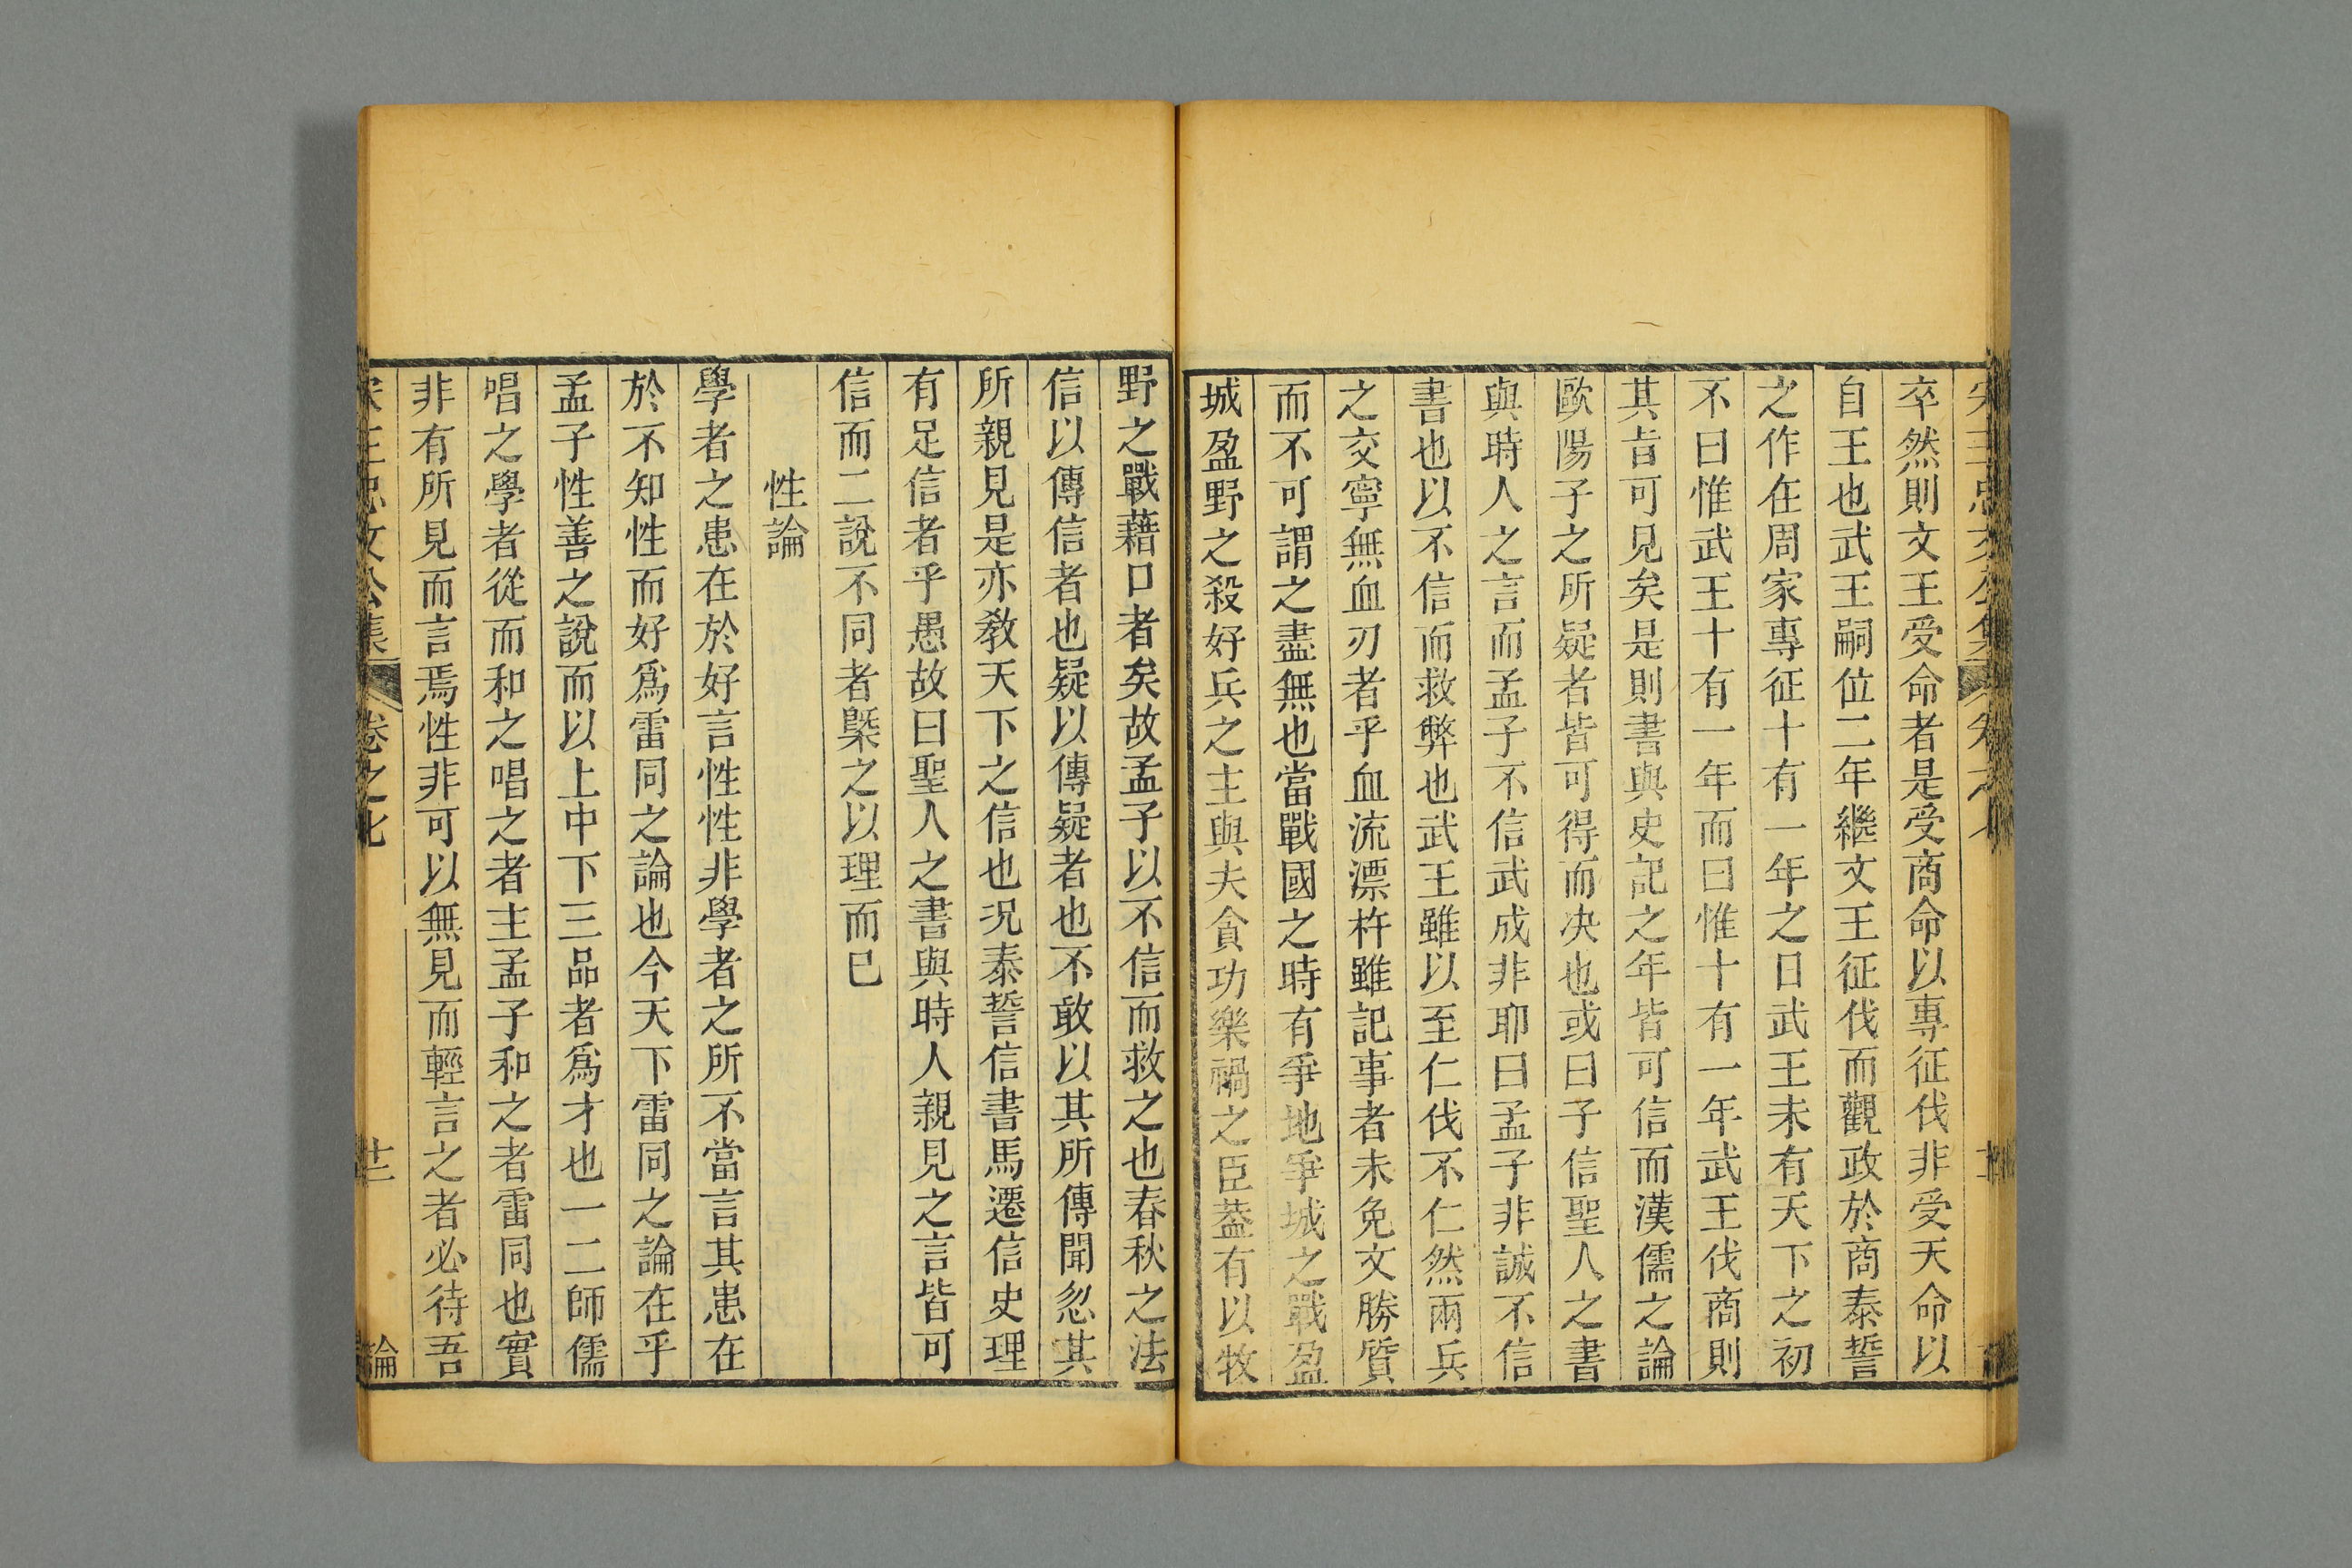 卒然則文王受命者是受商命以專征伐非受天命以
自王也武王嗣位二年繼文王征伐而觀政於商泰誓
之作在周家專征十有一年之日武王未有天下之初
不曰惟武王十有一年而曰惟十有一年武王伐商則
其旨可見矣是則書與史記之年皆可信而漢儒之論
歐陽子之所疑者皆可得而决也或曰子信聖人之書
與時人之言而孟子不信武成非耶曰孟子非誠不信
書也以不信而救弊也武王雖以至仁伐不仁然兩兵
之交寧無血刃者乎血流漂杵雖記事者未免文勝質
而不可謂之盡無也當戰國之時有爭地爭城之戰盈
城盈野之殺好兵之主與夫貪功樂禍之臣葢有以牧
野之戰藉口者矣故孟子以不信而救之也春秋之法
信以傳信者也疑以傳疑者也不敢以其所傳聞忽其
所親見是亦敎天下之信也况泰誓信書馬遷信史理
有足信者乎愚故曰聖人之書與時人親見之言皆可
信而二說不同者槩之以理而已
性論
學者之患在於好言性性非學者之所不當言其患在
於不知性而好爲雷同之論也今天下雷同之論在乎
孟子性善之說而以上中下三品者爲才也一二師儒
唱之學者從而和之唱之者主孟子和之者雷同也實
非有所見而言焉性非可以無見而輕言之者必待吾
宋王忠文公集 卷之七 十二 論